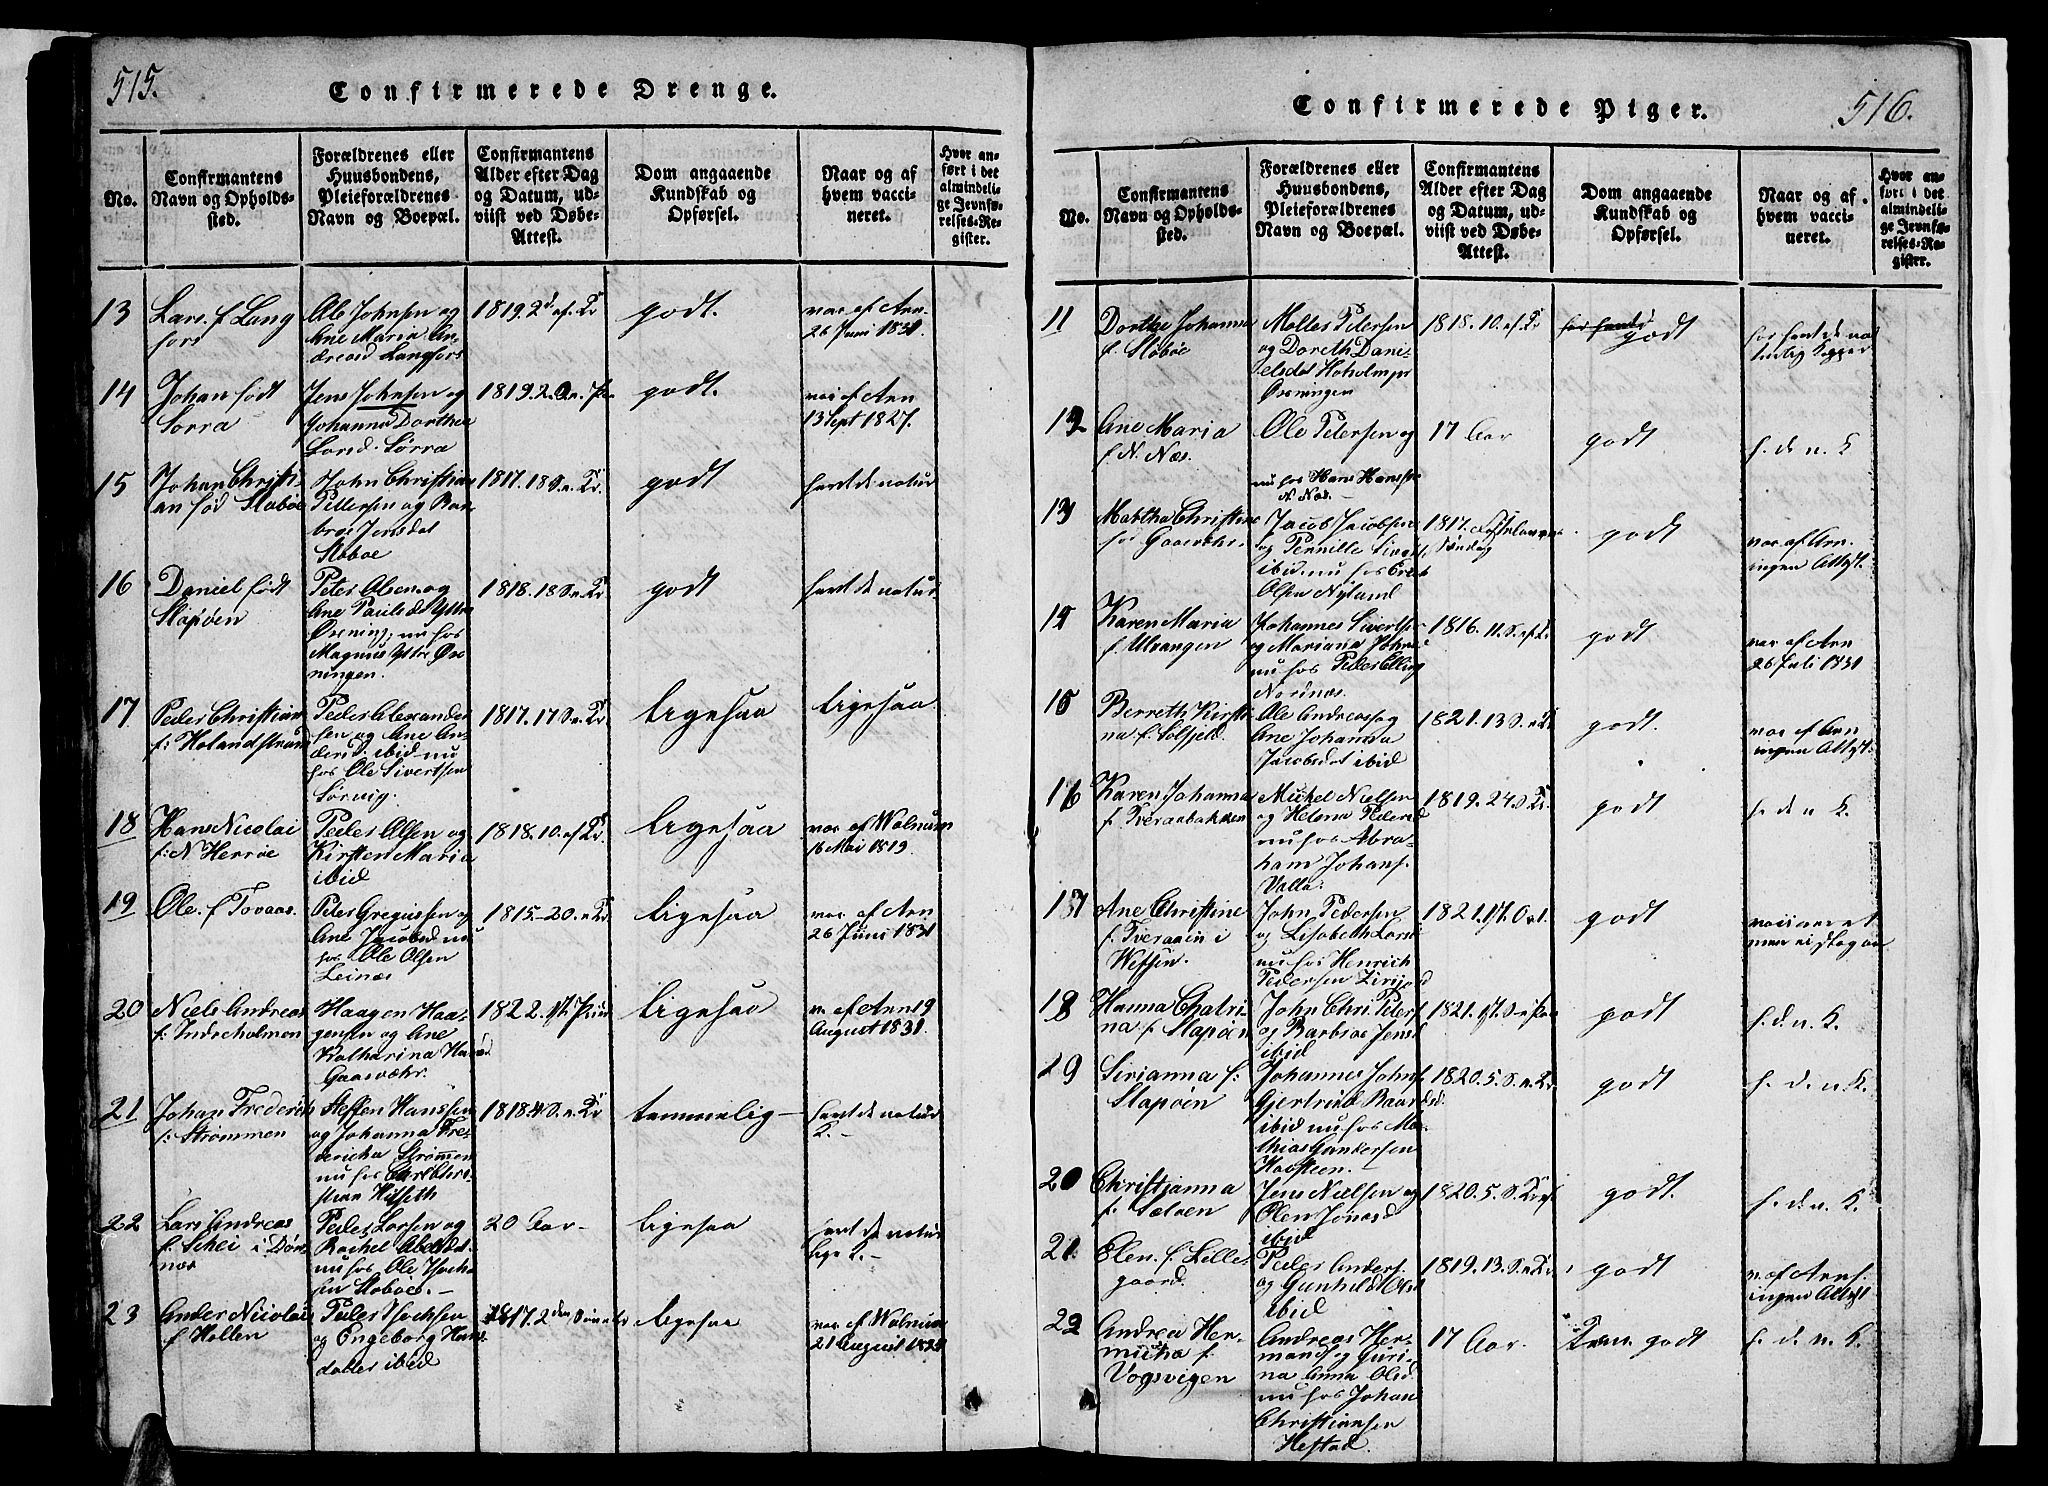 515.
Confirmerede Drenge.
No.
Confirmantens
Navn og Opholds-
sted.
Forældrenes eller
Huusbondens,
Pleieforældrenes
Navn og Boepæl.
Confirmantens
Alder efter Dag
og Datum, ud-
viist ved Døbe-
Attest.
Dom angaaende
Kundskab og
Opførsel.
Naar og af
hvem vacci-
neret.
Hvor an-
ført i det
almindeli-
ge Jevnfø-
relses-Re-
gister.
13
Lars f Lang
fors
Ole Johnsen og
Ane Maria An-
dreasd Langfors
1819. 2d ef. Tr
godt.
vac af Arn.
26 Juni 1831
14
Johan født
Sorra
Jens Johnsen og
Johanna Dorthea
Lorsd. Sørra
1819. 2.
godt.
vac af Arn
13 Sept 1827.
15
Johan Christi-
an fød Slobøe
John Christian
Pettersen og Bar-
broe Jensdat
Slobøe
1817. 18 S. e. Tr.
godt
havt de natur
16
Daniel født
Slapøen
Peter Olsen og
Ane Paulsd Yttre
Øxning, nu hos
Magnus Yttre Øx-
ningen.
1818. 18 S. e. Tr
godt
havt de natur
17
Peder Christian
f: Holandstrand
Peder Alexander
sen og Ane An-
dersd. ibid nu
hos Ole Sivertsen
Sørvig.
1817. 17 S. e. Tr.
ligesaa
ligesaa
18
Hans Nicolai
f: N Herrøe
Peder Olsen og
Kirsten Maria
ibid
1818. 10. ef Tr.
ligesaa
vac af Walnum
16 Mai 1819.
19
Ole. f Tovaas.
Peder Gregussen og
Ane Jacobsd nu
hos Ole Olsen
Leinæs
1815-20. e Tr.
ligesaa
vac af Arn
26 Juni 1831
20
Niels Andreas
f: Indreholmen
Haagen Haa-
gensen og Ane
Katharina Hansd
Gaasvæhr.
1822. 17.
ligesaa
v. af Arn 19
August 1831.
21.
Johan Frederich
f: Strømmen
Steffen Hanssen
og Johanna Fre-
dericha Strømmen
nu hos Carl Chri-
stian Hilseth
1818. 4 S. e. Tr
temmelig
havt de natur
K.-
22
Lars Andreas
f. Schei i Døn-
næs
Peder Larsen og
Rachel Abelsdat.
nu hos Ole Isach-
sen Slobøe.-
20 Aar-
ligesaa
havt de natur
lige K.-
23
Ander Nicolai
f Hollen
Peder Isachsen
og Engeborg Hans
datter ibid
1817. 2den
ligesaa
vac af Walnum
21 August 1821
516.
Confirmerede Piger.
No.
Confirmantens
Navn og Opholds-
sted.
Forældrenes eller
Huusbondens,
Pleieforældrenes
Navn og Boepæl.
Confirmantens
Alder efter Dag
og Datum, ud-
viist ved Døbe-
Attest.
Dom angaaende
Kundskab og
Opførsel.
Naar og af
hvem vacci-
neret.
Hvor an-
ført i det
almindeli-
ge Jevnfø-
relses-Re-
gister.
11
Dorthe Johanna
f. Slobøe
Molles Petersen
og Doreth Dani-
elsdat Hoholmen
Øxningen
1818. 10. ef Tr
godt
har havt de na
turlig Kopper
12
Ane Maria
f. N. Næs.
Ole Petersen og
nu hos Hans Hanssen
N. Næs.-
17 Aar
godt
h. de n. K
13
Martha Christine
fød Gaasvæhr.
Jacob Jacobsen
og Pernille Sivertsd
ibid. nu hos Erich
Olsen Nylund
1817. Fastelavns
Søndag
godt
vac af Arn.
ingen Attest.
14
Karen Maria
f. Ulvangen
Johannes Sivertsen
og Mariana Johnsd
nu hos Peder Elling
Nordnæs.
1816. 11. S. ef Tr
godt
vac af Arn
26 Juli 1831
15
Berreth Kirsti-
na f. Solfjeld.
Ole Andreas og
Ane Johanna
Jacobsdat ibid
1821. 13 S. e Tr
godt.
vac af Arn
ingen Attest.
16
Karen Johanna
f. Tveraabakken
Michel Nielsen
og Helena Pedersd
nu hos Abra-
ham Johans.
Valla.
1819. 24. S Tr.
godt
h. de n K.
17
Ane Christine
f. Tveraaen i
Wefsen.
John Pedersen
og Lisabeth Larsd
nu hos Henrich
Pedersen
1821. 17. Oct.
godt
vaccineret
men ei
18
Hanna Chatri-
na f. Slapøen
John Chri. Peders
og Barbroe Jensd
ibid
1821. 17. S.
godt
h. d. n. K.
19
Sirianna f:
Slapøen
Johannes Johns
Gjertrud Baardsd.
ibid nu hos Ma-
thias Gundersen
Havsteen.-
1820. 5. S. e. Tr
godt
h. d. n K.
20
Christianna
f. Sælven
Jens Nielsen og
Olen Jonasd
ibid
1820. 5. S. Tr ef
godt.
h. de n. K.
21.
Elen. f. Lille-
gaard.
Peder Anders.
og Gunhild Olsd
ibid
1819. 13. S. e Tr.
godt
v. af Arn.
ingen Attest
22
Andrea Her-
micha f.
Vogsvigen
Andreas Her-
mands og Guri-
na Anna Olsd
nu hos Johan
Christiansen
Hestad.
17 Aar.
Tem. godt
h. de n. K.